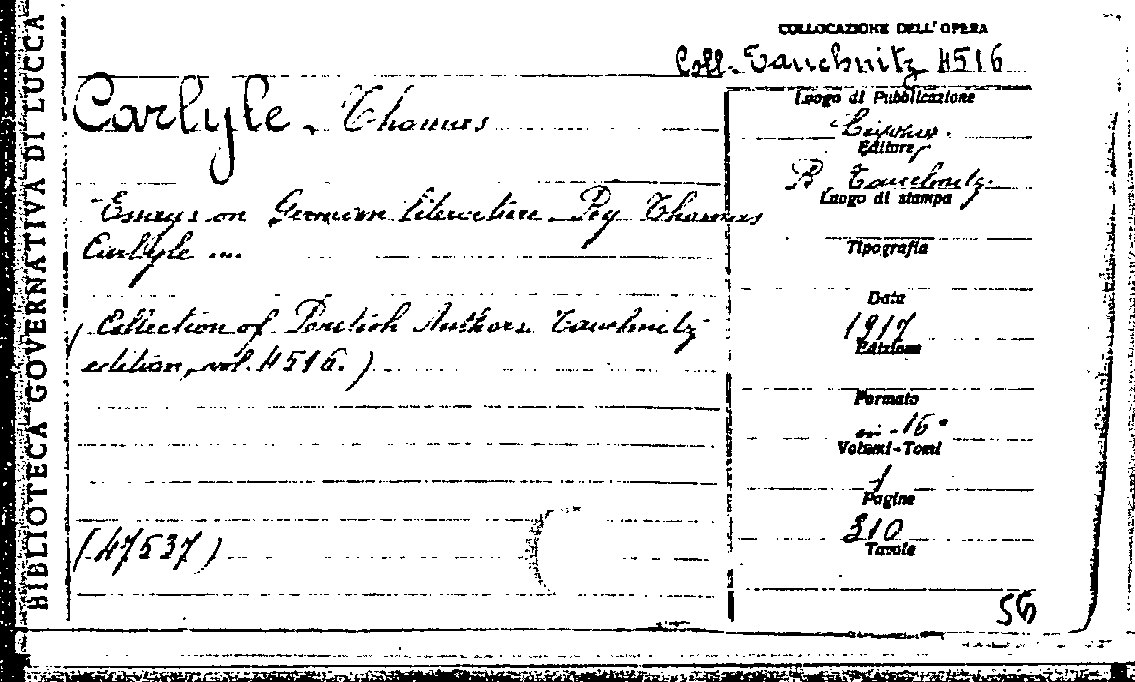 BIBLIOTECA GOVERNATIVA DI LUCCA
COLLOCAZIONE DELL'OPERA
Coll. Tauchnitz 4516
Carlyle, Thomas
Essays on German literature. By Thomas
Carlyle ...
(Collection of British Authors. Tauchnitz
edition, vol. 4516.)
(47537)
Luogo di Pubblicazione
Editore
B. Tauchnitz.
Luogo di stampa
Tipografia
Data
1917
Edizione
Formato
in-16°
Volumi-Tomi
1
Pagine
310
Tavole
56